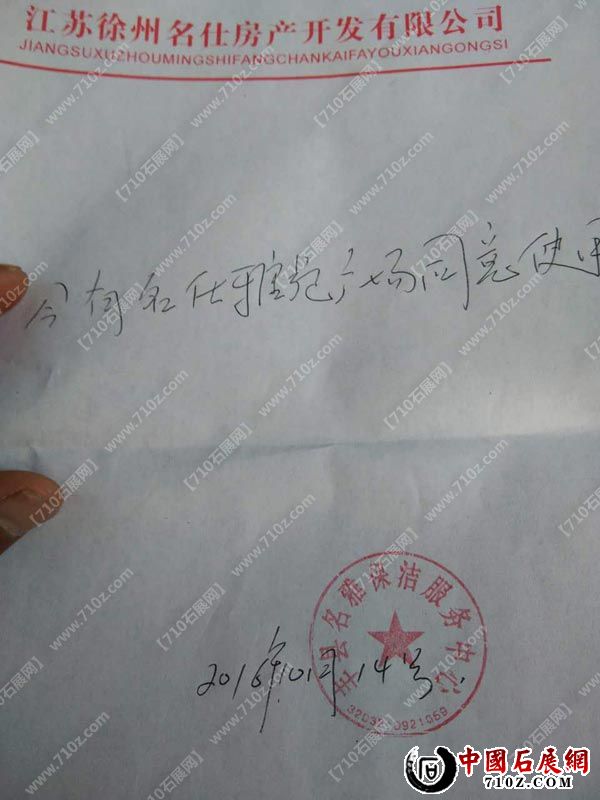 江苏徐州名仕房产开发有限公司
JIANGSUXUZHOUMINGSHIFANGCHANKAIFAYOUXIANGONGSI
今有名仕雅苑广场同意使用
县名雅保洁服务中心
2016年10月14号
中國石展網
710Z.COM
【710石展网】
www.710z.com